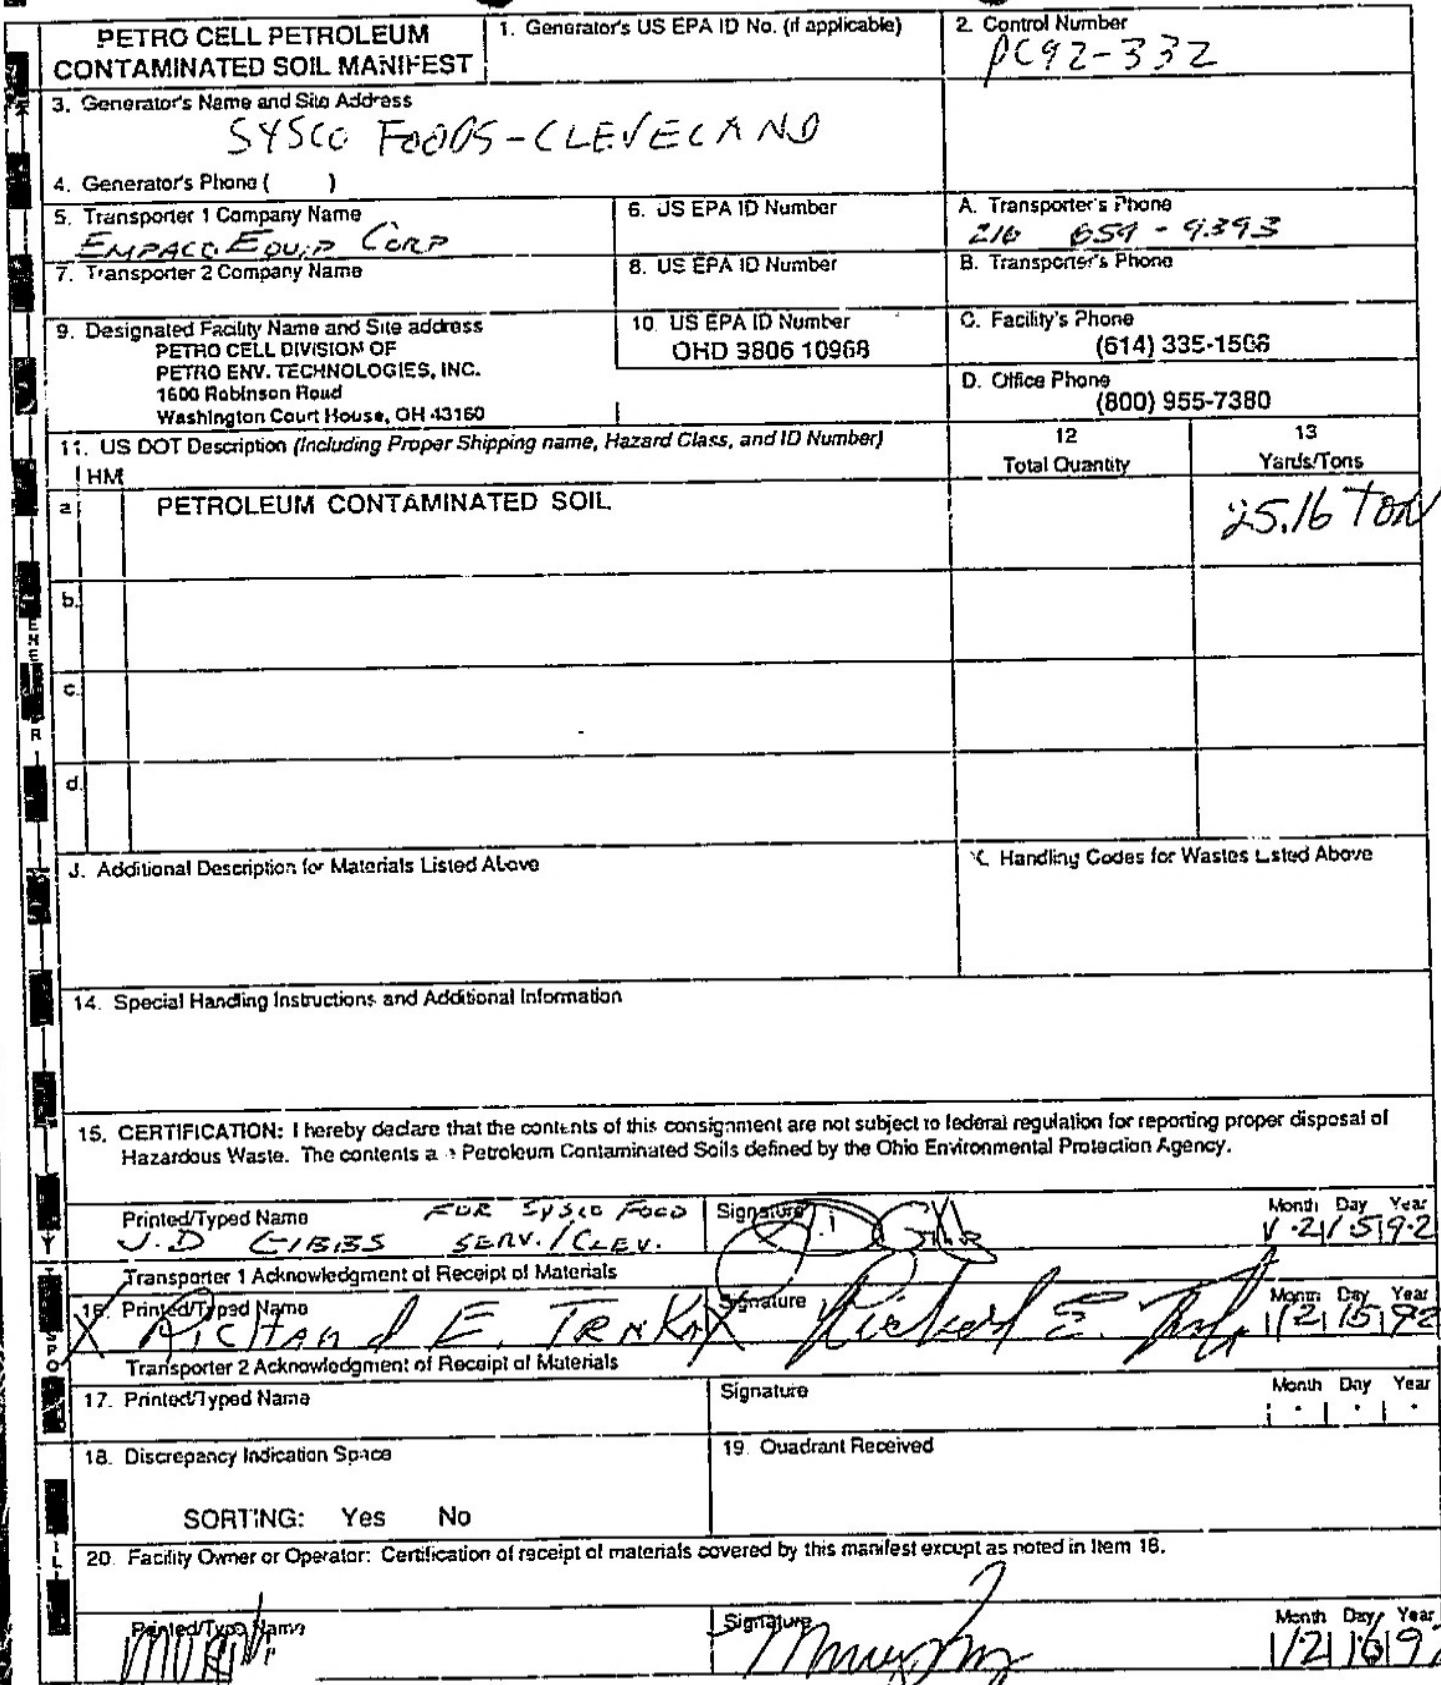 PETRO CELL PETROLEUM
CONTAMINATED SOIL MANIFEST
1. Generator's US EPA ID No. (if applicable)
2. Control Number
PC92-332
3. Generator's Name and Site Address
SYSCO FOODS-CLEVELAND
4. Generator's Phone (     )
5. Transporter 1 Company Name
EMPACO EQUIP CORP
6. US EPA ID Number
A. Transporter's Phone
216 659-9393
7. Transporter 2 Company Name
8. US EPA ID Number
B. Transporter's Phone
9. Designated Facility Name and Site address
PETRO CELL DIVISION OF
PETRO ENV. TECHNOLOGIES, INC.
1600 Robinson Road
Washington Court House, OH 43160
10. US EPA ID Number
OHD 9806 10968
C. Facility's Phone
(614) 335-1506
D. Office Phone
(800) 955-7380
11. US DOT Description (Including Proper Shipping name, Hazard Class, and ID Number)
HM
12
Total Quantity
13
Yards/Tons
a PETROLEUM CONTAMINATED SOIL
25.16 TON
b.
c.
d.
J. Additional Description for Materials Listed Above
K. Handling Codes for Wastes Listed Above
14. Special Handling Instructions and Additional Information
15. CERTIFICATION: I hereby declare that the contents of this consignment are not subject to federal regulation for reporting proper disposal of
Hazardous Waste. The contents are Petroleum Contaminated Soils defined by the Ohio Environmental Protection Agency.
Printed/Typed Name
J.D GIBBS
FOR SYSCO FOOD
SERV./CLEV.
Signature
J.D Gibbs
Month Day Year
12 15 92
Transporter 1 Acknowledgment of Receipt of Materials
16. Printed/Typed Name
X Richard E. Trnka
Signature
X Richard E. Trnka
Month Day Year
12 15 92
Transporter 2 Acknowledgment of Receipt of Materials
17. Printed/Typed Name
Signature
Month Day Year
18. Discrepancy Indication Space
SORTING: Yes No
19. Quadrant Received
20. Facility Owner or Operator: Certification of receipt of materials covered by this manifest except as noted in Item 18.
Printed/Type Name
Signature
Murphy
Month Day Year
12 16 92